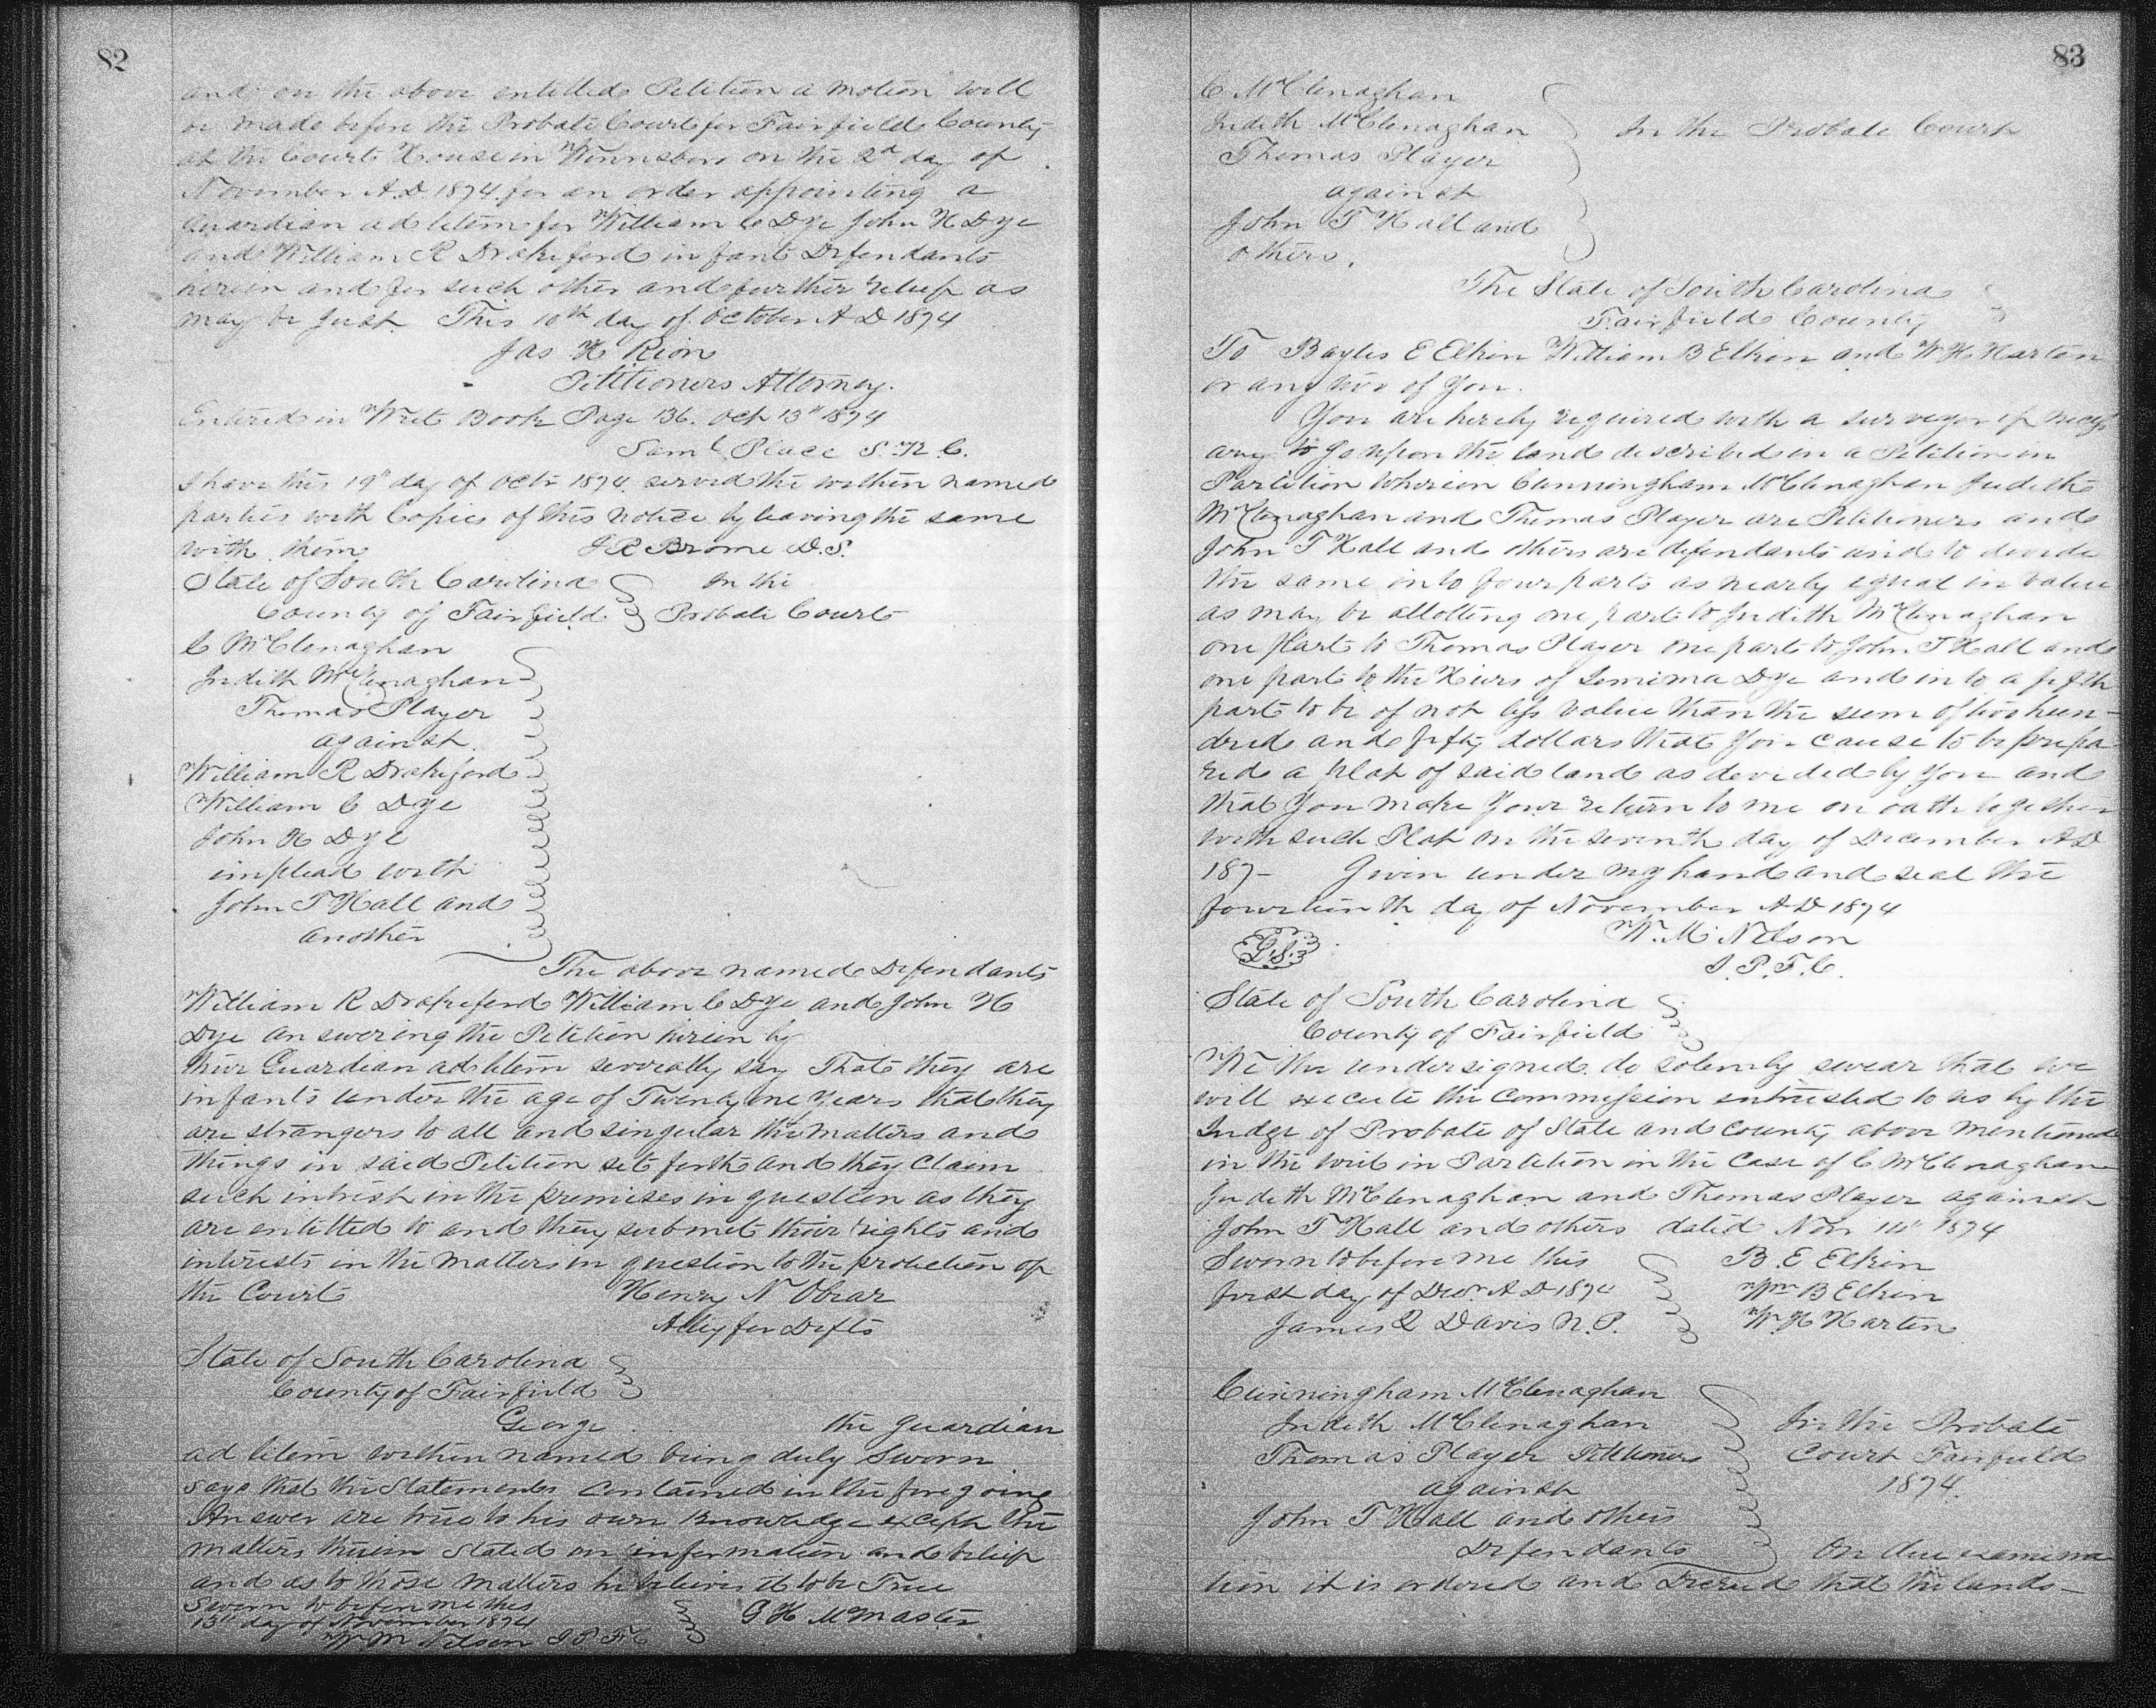 82
and on the above entitled Petition a motion will
be made before the Probate Court for Fairfield County
at the Court House in Winnsboro on the 2d day of
November A.D. 1874 for an order appointing a
Guardian ad litem for William C Dye John H Dye
and William R Drakeford infant Defendants
herein and for such other and further relief as
may be just This 10th day of October A D 1874
Jas H Rion
Petitioners Attorney.
Entered in Writ Book Page 136. Oct 13th 1874
Saml Place S.F.C.
I have this 19th day of Octr 1874 served the within named
parties with Copies of this notice by leaving the same
with them J R Brome D.S.
State of South Carolina In the
County of Fairfield Probate Court
C McClenaghan
Judith McClenaghan
Thomas Player
against
William R Drakeford
William C Dye
John H Dye
implead with
John T Hall and
another
The above named Defendants
William R Drakeford William C Dye and John H
Dye answering the Petition herein by
their Guardian ad litem severally say That they are
infants under the age of Twenty one years that they
are strangers to all and singular the matters and
things in said Petition set forth and they Claim
such intrest in the premises in question as they
are entitled to and they submit their rights and
interests in the matters in question to the protection of
the Court Henry N Obear
Atty for Defts
State of South Carolina
County of Fairfield
George the guardian
ad litem within named being duly Sworn
says that the Statements Contained in the foregoing
Answer are true to his own Knowledge except the
matters therein stated on information and belief
and as to those matters he believes it to be True
Sworn to before me this
13th day of November 1874 G H McMaster
W M Nelson J P F C
83
C McClenaghan
Judith McClenaghan In the Probate Court
Thomas Player
against
John T Hall and
others.
The State of South Carolina
Fairfield County
To Bayles E Elkin William B Elkin and W H Harten
or any two of You.
You are hereby required with a surveyor if necess
ary to go upon the land described in a Petition in
Partition Wherein Cunningham McClenaghan Judith
McClenaghan and Thomas Player are Petitioners and
John T Hall and others are defendants and to devide
the same into four parts as nearly equal in value
as may be allotting one part to Judith McClenaghan
one part to Thomas Player one part to John T Hall and
one part to the Heirs of Jemima Dye and into a fifth
part to be of not less value than the sum of two hun-
dred and fifty dollars that You cause to be prepa
red a plat of said land as devided by You and
that You make Your return to me on oath together
with such Plat on the seventh day of December AD
187- Given under my hand and seal the
fourteenth day of November A D 1874
L.S. W. M. Nelson
J. P. F. C.
State of South Carolina
County of Fairfield
We the undersigned do solemly swear that we
will execute the Commission entrusted to us by the
Judge of Probate of State and County above mentioned
in the writ in Partition in the Case of C McClenaghan
Judith McClenaghan and Thomas Player against
John T Hall and others dated Nov 14th 1874
Sworn to before me this B. E Elkin
first day of Decr A D 1874 Wm B Elkin
James Q Davis N. P. W H Harten
Cunningham McClenaghan
Judith McClenaghan In the Probate
Thomas Player Petitioners Court Fairfield
against 1874.
John T Hall and others
Defendants On due examina
tion it is ordered and Decreed that the lands-